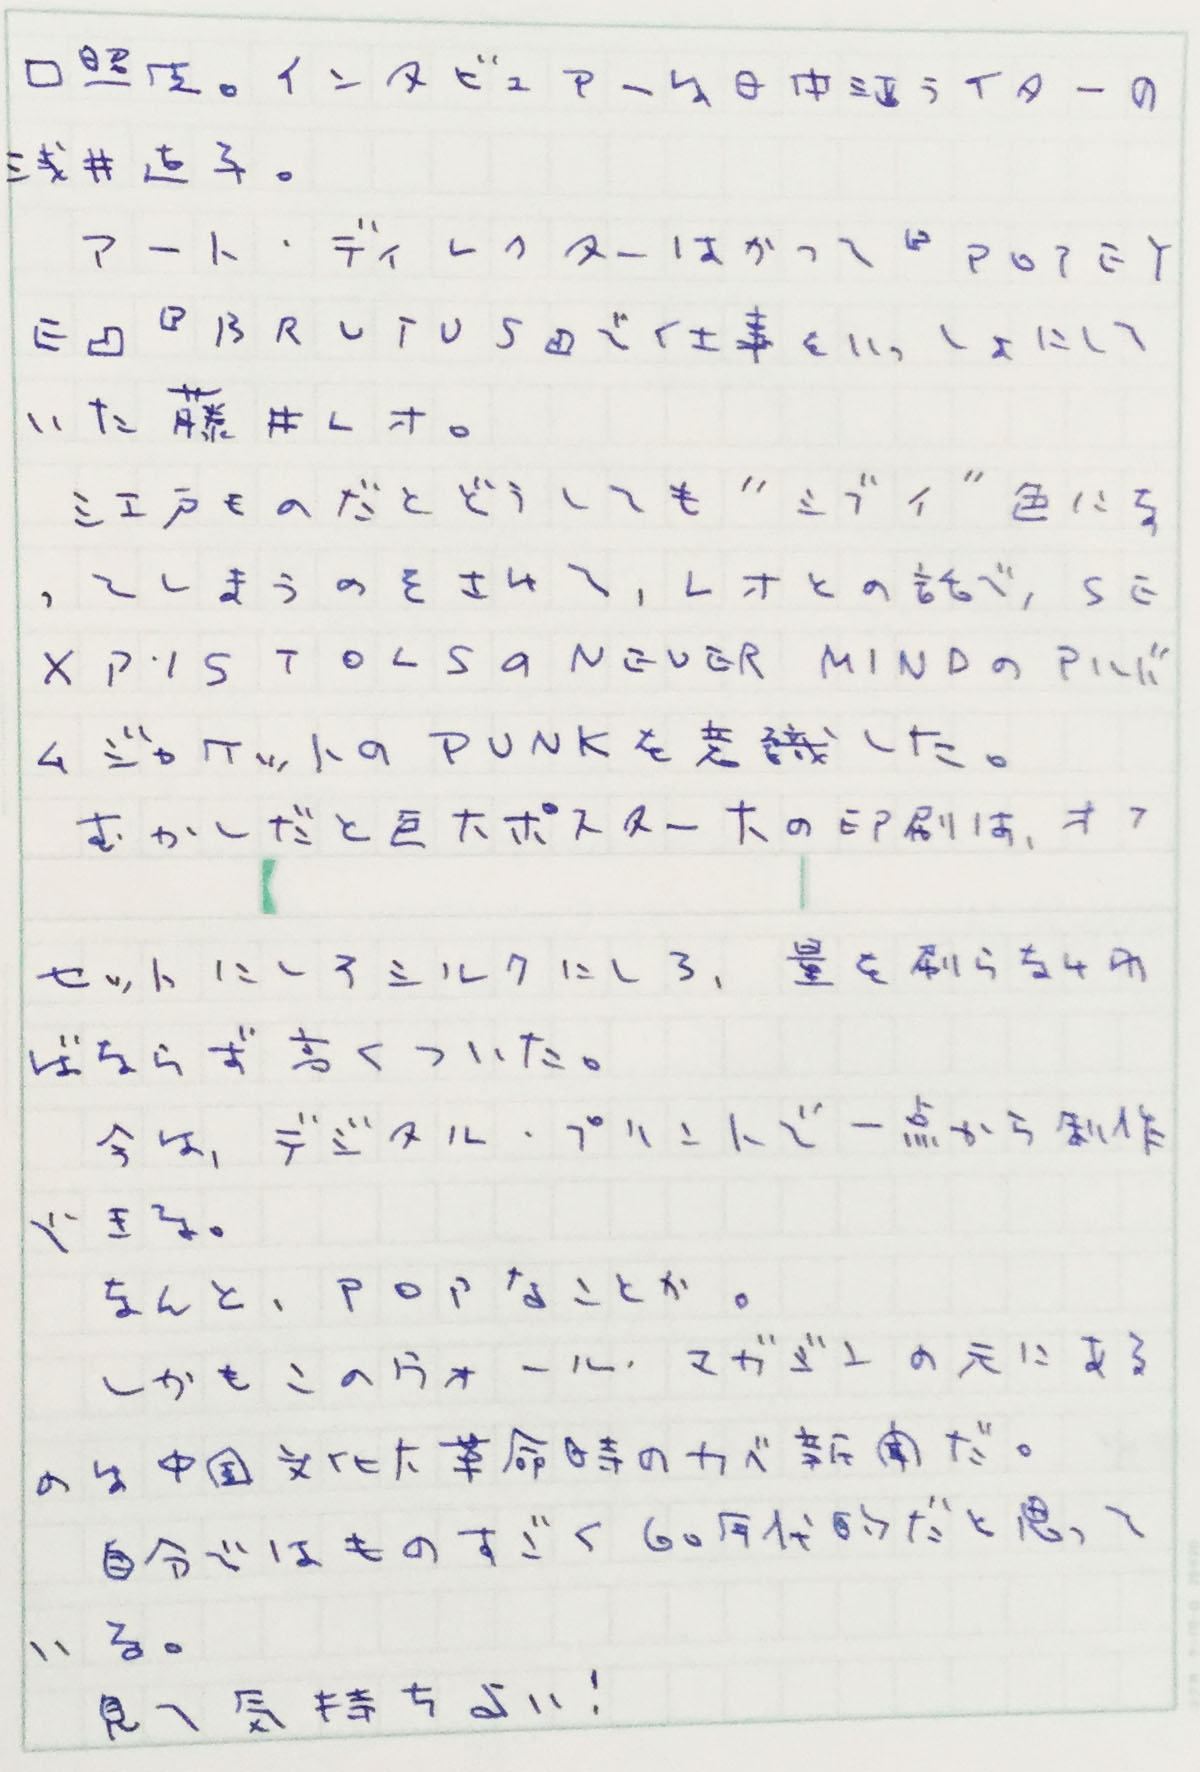 口照度。インタビュアーは日中語ライターの
浅井直子。
アート・ディレクターはかつて『POPEY
E』『BRUTUS』で仕事をいっしょにして
いた藤井レオ。
江戸ものだとどうしても“シブイ”色にな
ってしまうのをさけて、レオとの話で、SE
X PISTOLSのNEVER MINDのアルバ
ムジャケットのPUNKを意識した。
むかしだと巨大ポスター大の印刷は、オフ
セットにしろシルクにしろ、量を刷らなけれ
ばならず高くついた。
今は、デジタル・プリントで一点から制作
できる。
なんと、POPなことか。
しかもこのウォール・マガジンの元にある
のは中国文化大革命時のカベ新聞だ。
自分ではものすごく60年代的だと思って
いる。
見て気持ちよい!